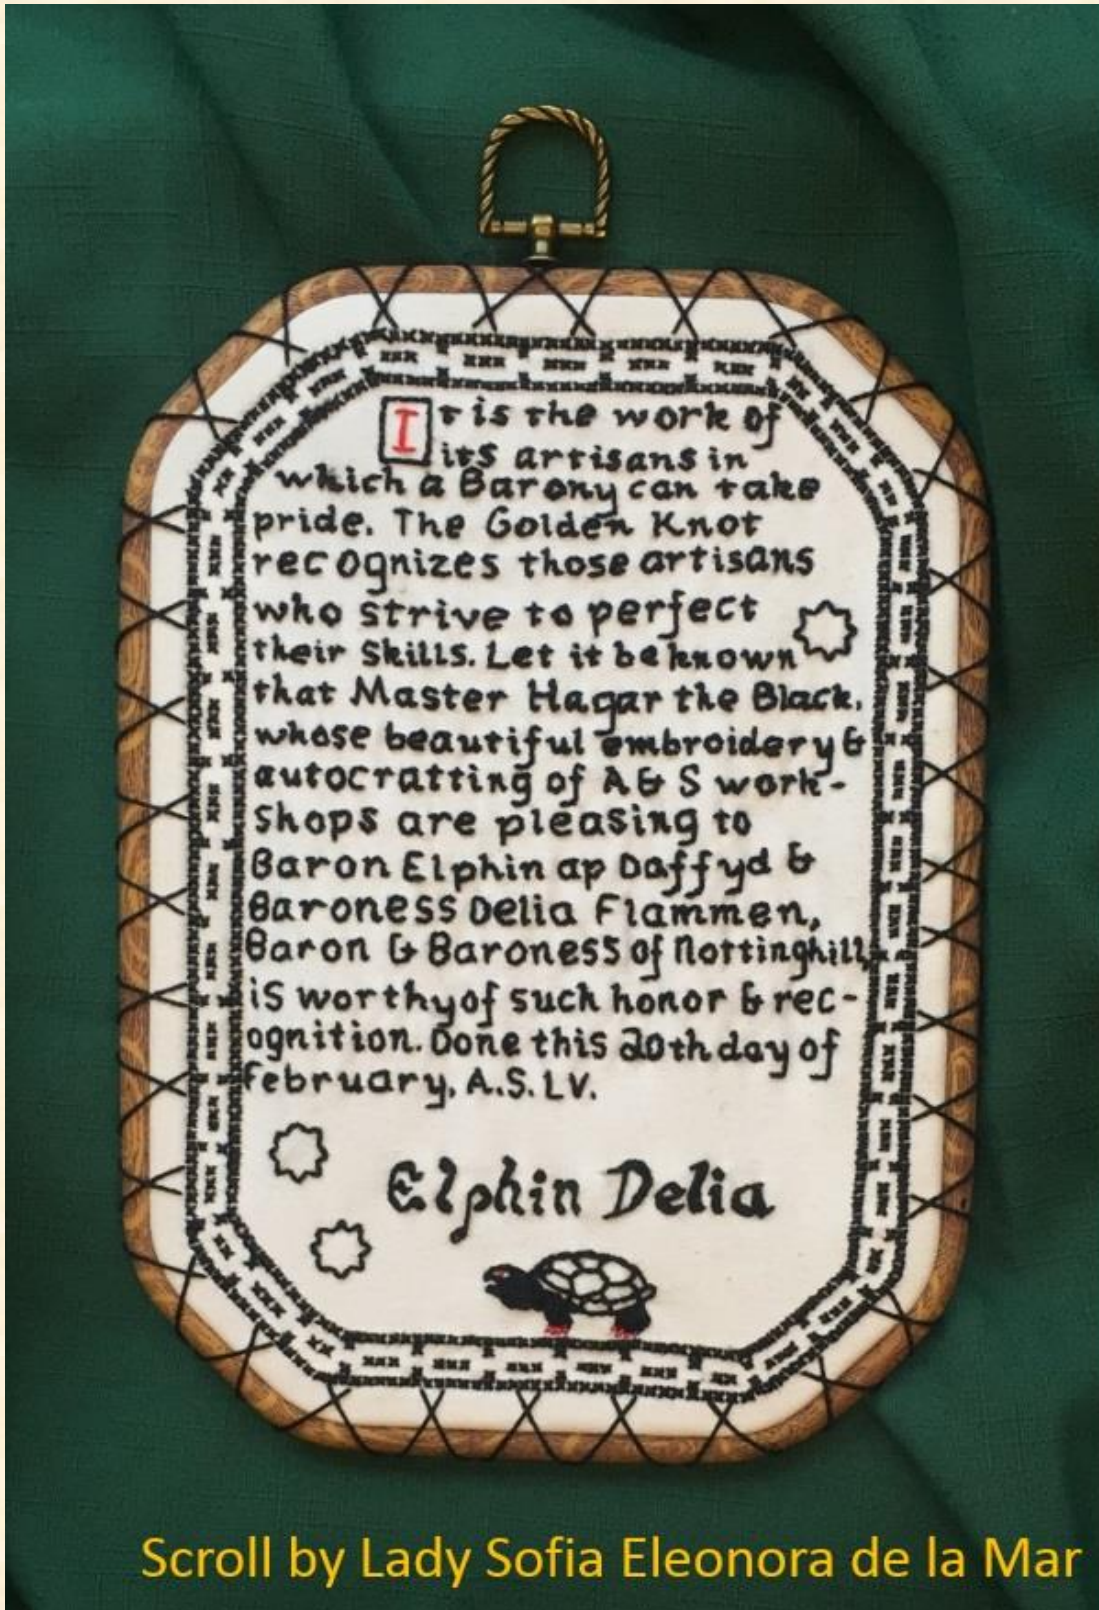 It is the work of
its artisans in
which a Barony can take
pride. The Golden Knot
recognizes those artisans
who strive to perfect
their Skills. Let it be known
that Master Hagar the Black,
whose beautiful embroidery &
autocratting of A & S work-
shops are pleasing to
Baron Elphin ap Daffyd &
Baroness Delia Flammen,
Baron & Baroness of Nottinghill,
is worthy of such honor & rec-
ognition. Done this 20th day of
february, A.S. LV.
Elphin Delia
Scroll by Lady Sofia Eleonora de la Mar